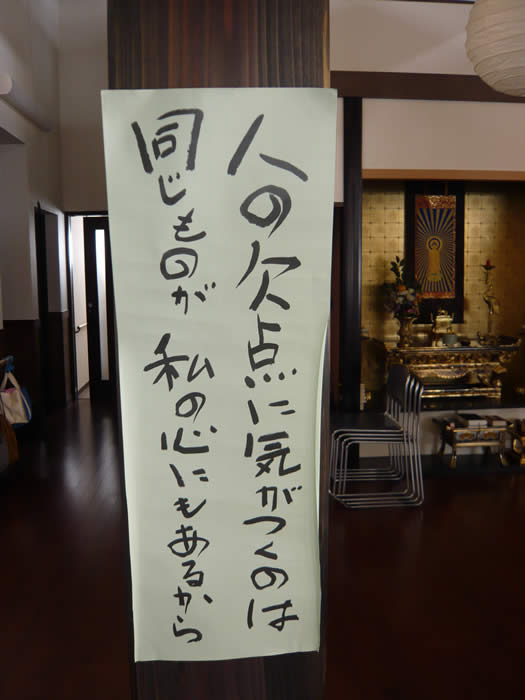 人の欠点に気がつくのは
同じものが 私の心にもあるから